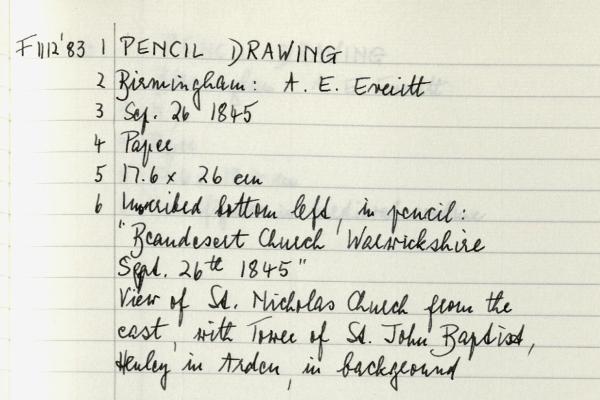 F1112'83 1 PENCIL DRAWING
2 Birmingham: A. E. Everitt
3 Sep. 26 1845
4 Paper
5 17.6 x 26 cm
6 Inscribed bottom left, in pencil:
"Beaudesert Church Warwickshire
Sept. 26th 1845"
View of St. Nicholas Church from the
east, with Tower of St. John Baptist,
Henley in Arden, in background